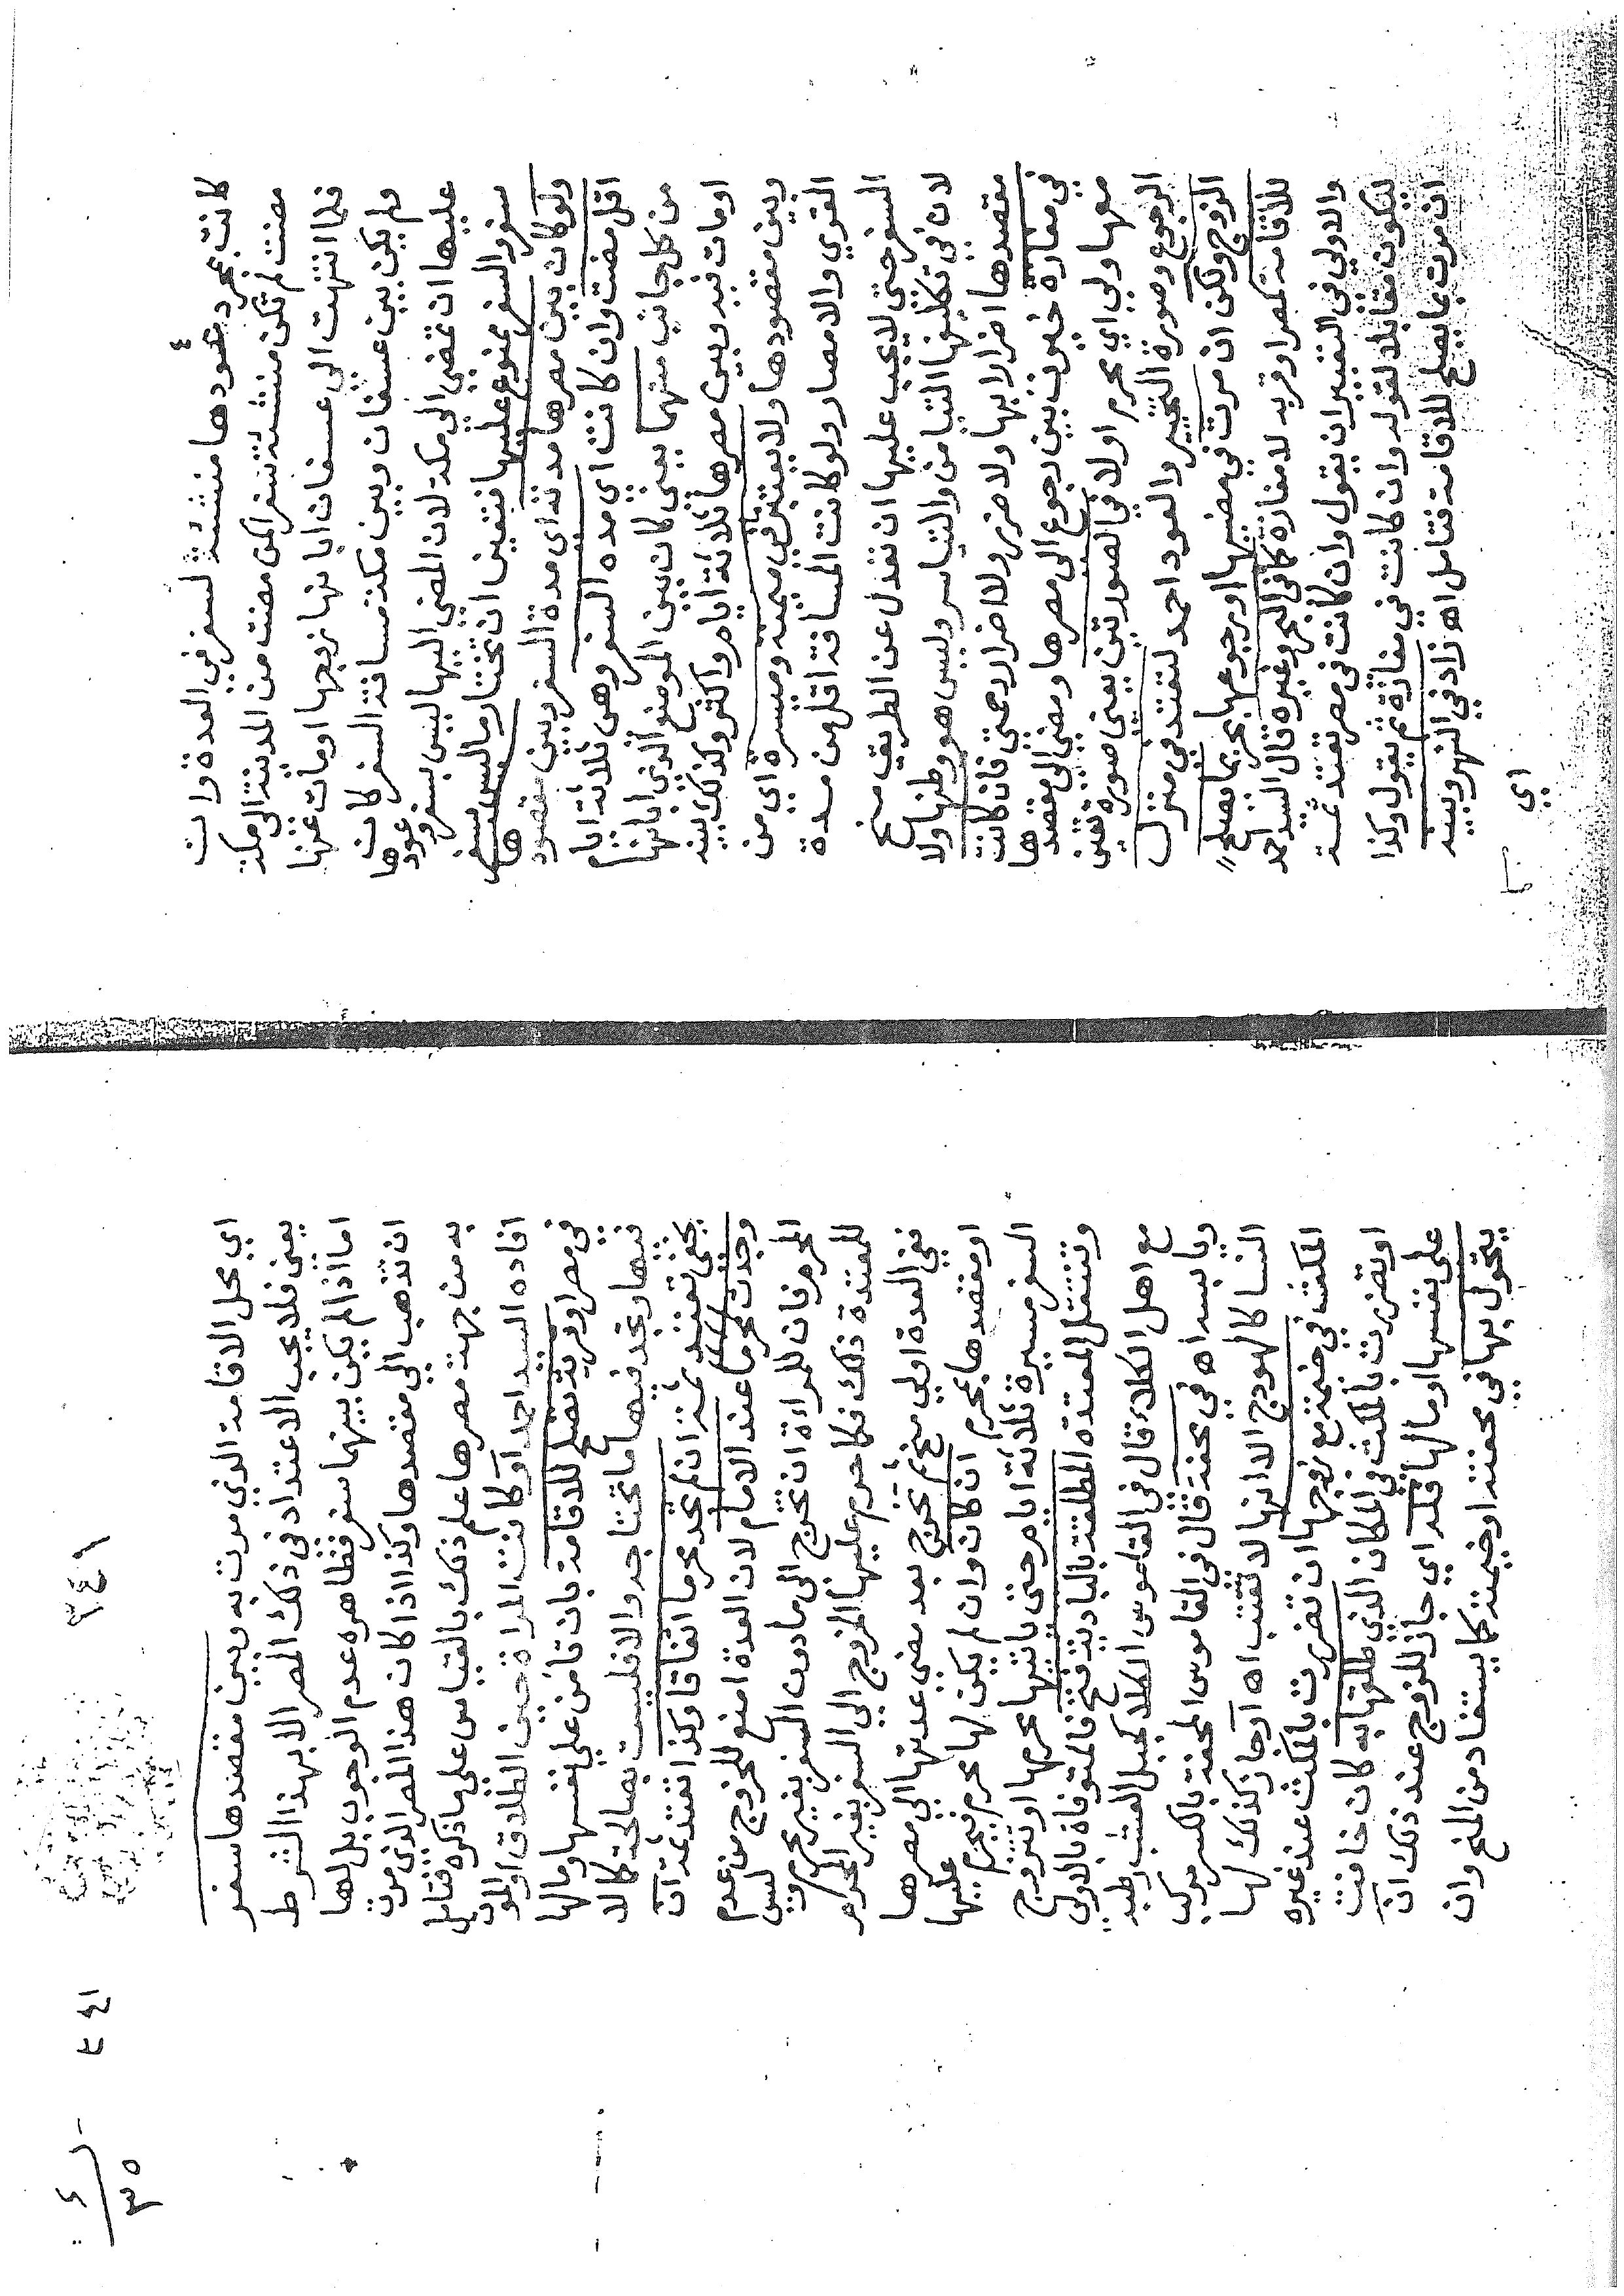 كانت بمجرد عودها منشئة لسفر في العدة وان
مضت لم تكن منشئة سفر الكن مضت من المدينة الى مكة
فلما انتهت الى عسفان ابانها زوجها اومات عنها
ولم يكن بين عسفان وبين مكة مسافة السفر كان
عليها ان تمضي الى مكة لان المضي اليها ليس بسفر وعودها
سفر والسفر ممنوع عليها فتعين ان تختار ما ليس بسفر
ولو كان بين مصرها مدته اي مدة السفر وبين مقصودها
اقل مضت وان كانت اي مده السفر وهي ثلاثة ايام
من كل جانب منهما يعني كان بين الموضع الذي ابانها
اومات فيه وبين مصرها ثلاثة ايام واكثر وكذلك بينه
وبين مقصودها ولا يعتبر في ميمنة وميسرة اي من
القري والامصار ولو كانت المسافة اقل من مدة
السفر حتى لا يجب عليها ان تعدل عن الطريق منح
لان في تكليفها التيامن والتياسر وليس هو وطنها ولا
مقصدها اضرارا بها ولا ضرر ولا اضرار رحمتي فان كانت
في مفازة خيرت بين رجوع الى مصرها ومضي الى مقصدها
معها ولي اي محرم او لا في الصورتين يعني صورة تعين
الرجوع وصورة التخيير والعود احمد لتعتد في منزل
الزوج ولكن ان مرت في مضيها او رجوعها بما يصلح
للاقامة كمصر او قرية لا مفازة كما في البحر وغيره قال السيد احمد
والاولى في التعبير ان يقول وان كانت في مصر تعتد ثمة
لتكون مقابلا لقوله وان كانت في مفازة ثم يقول وكذا
ان مرت بما يصلح للاقامة فتامل اه زاد في النهر وبينه
اي
٣٤١
اي محل الاقامة الذي مرت به وبين مقصدها سفر
يعني فلا يجب الاعتداد في ذلك المصر الا بهذا الشرط
اما اذا لم يكن بينهما سفر فظاهره عدم الوجوب بل لها
ان تذهب الى مقصدها وكذا اذا كان هذا المصر الذي مرت
به من جهة مصرها علم ذلك بالقياس على ما ذكره فتامل
افاده السيد احمد او كانت المراة حين الطلاق او الموت
في مصر او قرية تصلح للاقامة بان تامن على نفسها ومالها
فيها وتجد فيها ما تحتاجه والا فليست بصالحة كما لا
يخفى تعتد ثمة ان لم تجد محرما اتفاقا وكذا تعتد ثمة ان
وجدت محرما عند الامام لان العدة امنع للخروج من عدم
المحرم فان للمراءة ان تخرج الى ما دون السفر بغير محرم وليس
للمعتدة ذلك فكما حرم عليها الخروج الى السفر بغير المحرم
ففي العدة اولى منح ثم تخرج بعد مضي عدتها الى مصرها
او مقصدها بمحرم ان كان وان لم يكن لها محرم فيحرم عليها
السفر مسيرة ثلاثة ايام حتى ياتيها محرمها او تتزوج
وتنتقل المعتدة المطلقة بالبادية فتح فالمتوفاة بالاولى
مع اهل الكلاء قال في القاموس الكلا كجبل العشب رطبه
ويابسه اه في محفة قال في القاموس المحفة بالكسر مركب
النسا كالهودج الا انها لا تقتب اه او جاز كذلك لها
المكث في خيمة مع زوجها ان تضررت بالمكث عند غيره
او تضررت بالمكث في المكان الذي طلقها به كان خافت
على نفسها او مالها فله اي جاز للزوج عند ذلك ان
يتحول بها في محفة او خيمة كما يستفاد من المنح وان